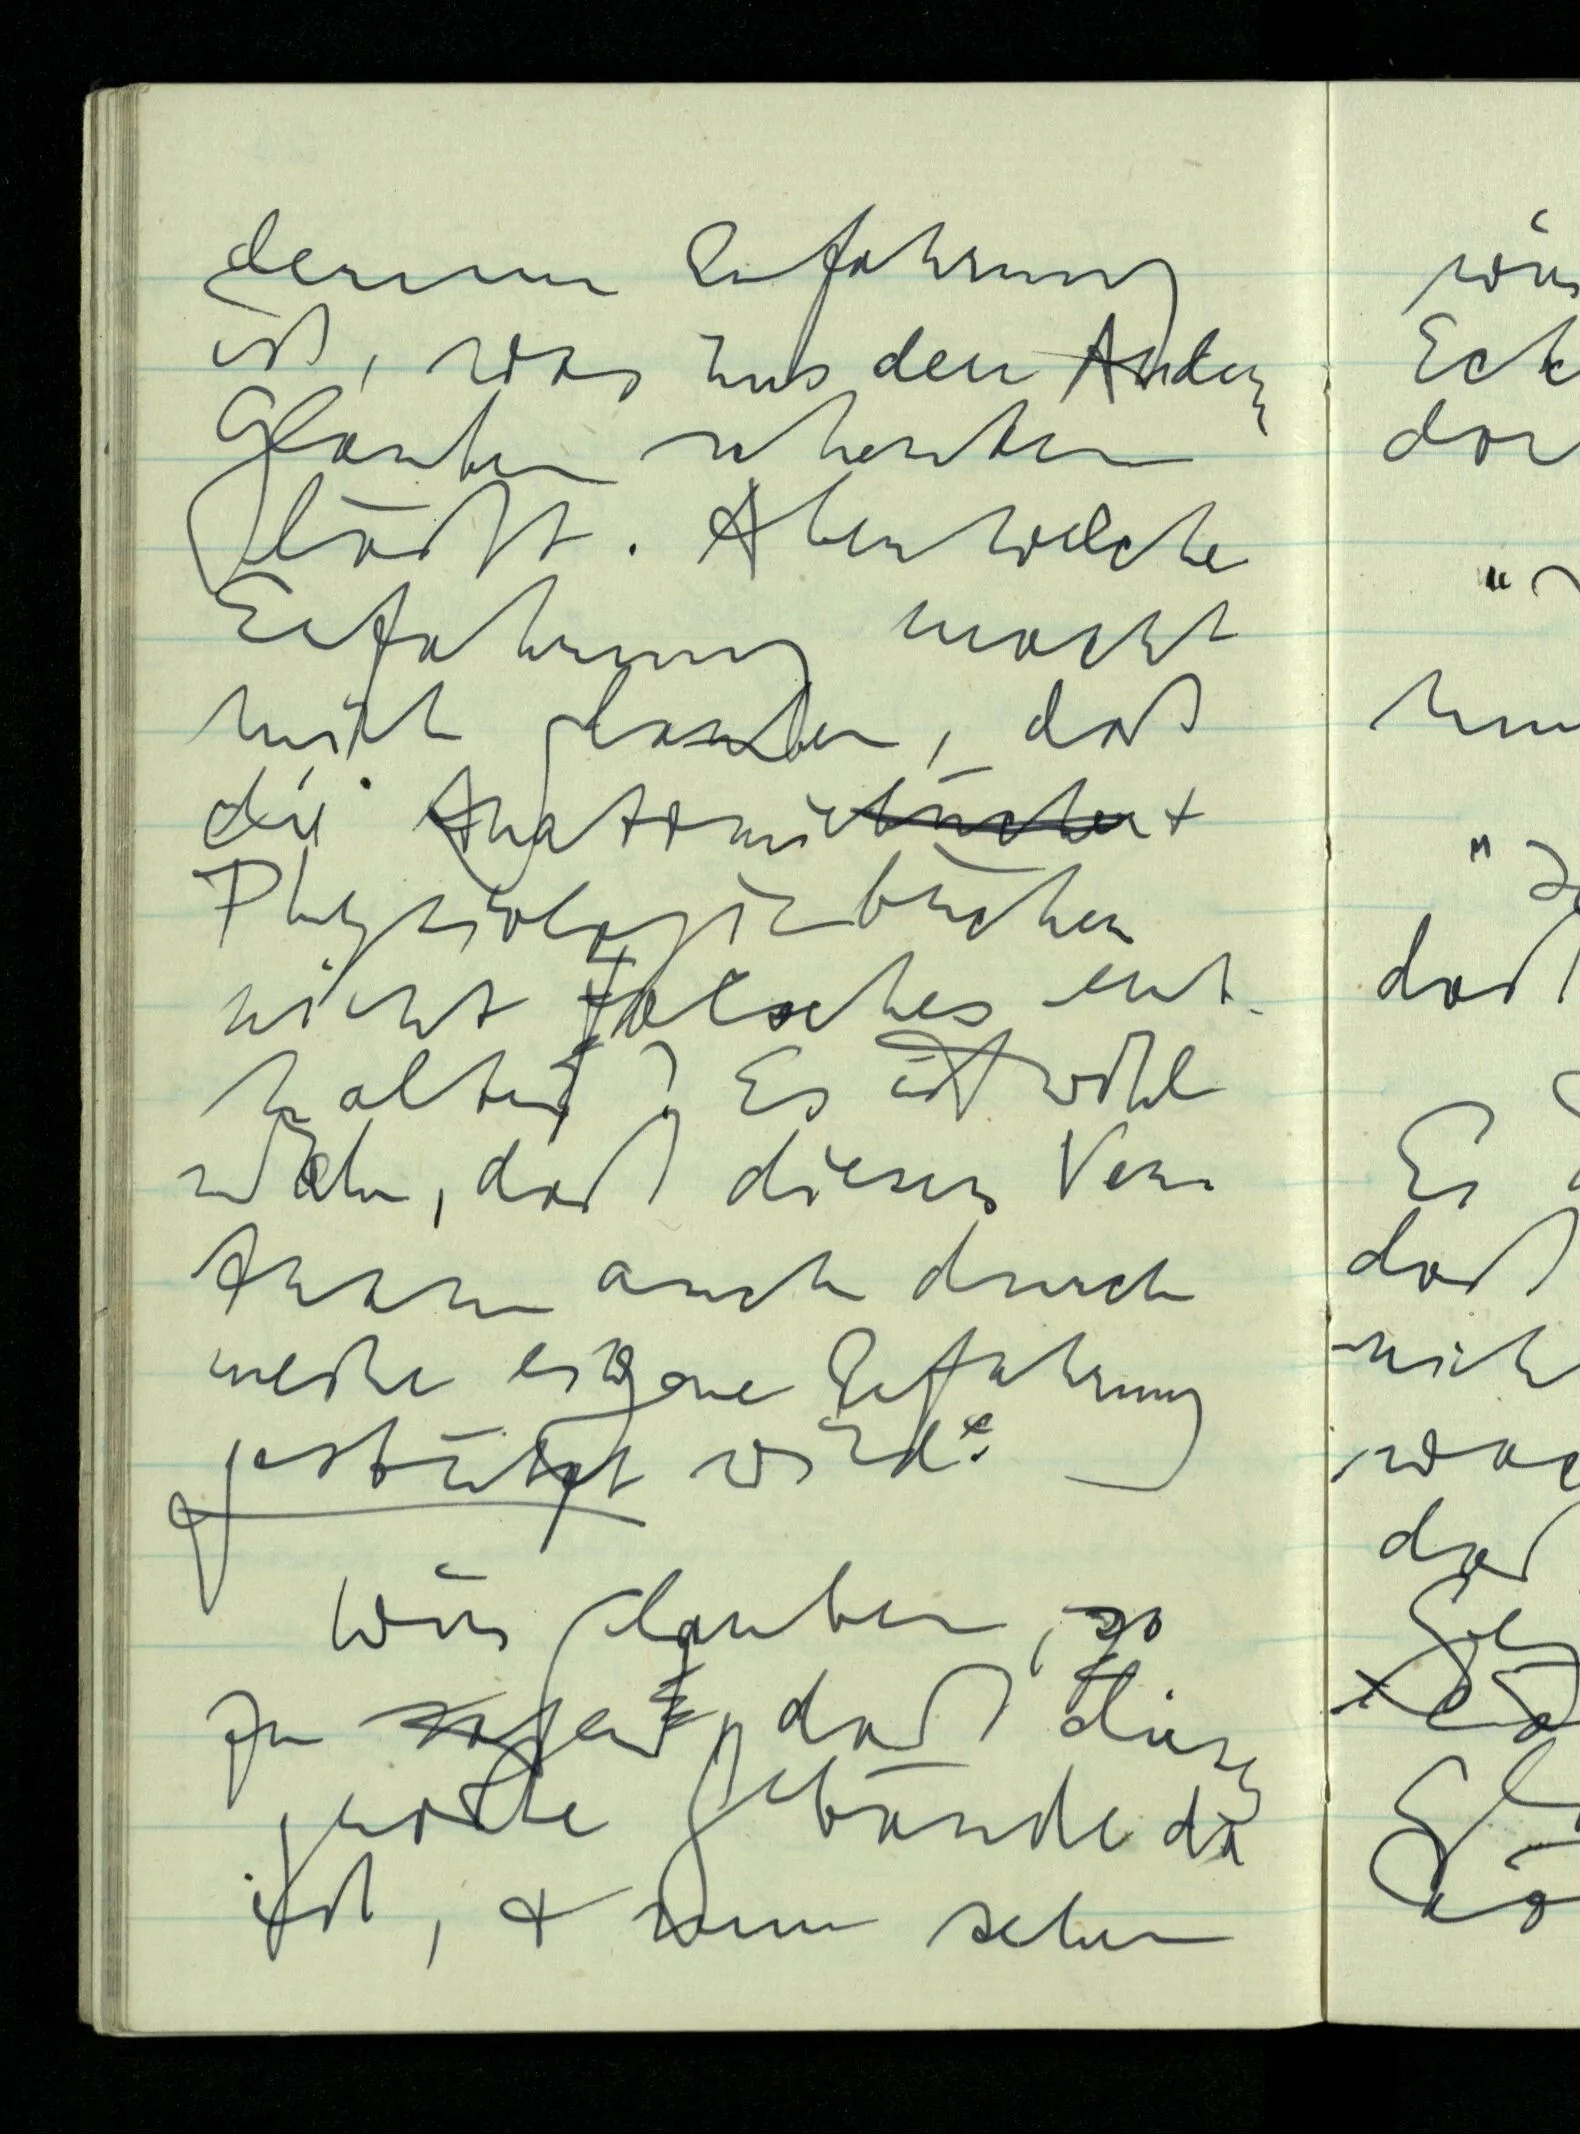 derum Erfahrung
ist, was uns den Anderen
Glauben schenken
läßt. Aber welche
Erfahrung macht
mich glauben, daß
die Anatomiebücher +
Physiologiebücher
nicht Falsches ent-
halten? Es ist wohl
wahr, daß dieses Ver-
trauen auch durch
meine eigene Erfahrung
gestützt wird.
Wir glauben, so
zu sagen, daß dieses
große Gebäude da
ist, + nun sehen
wir
Eck
dor
daß
Es
daß
nich
daß